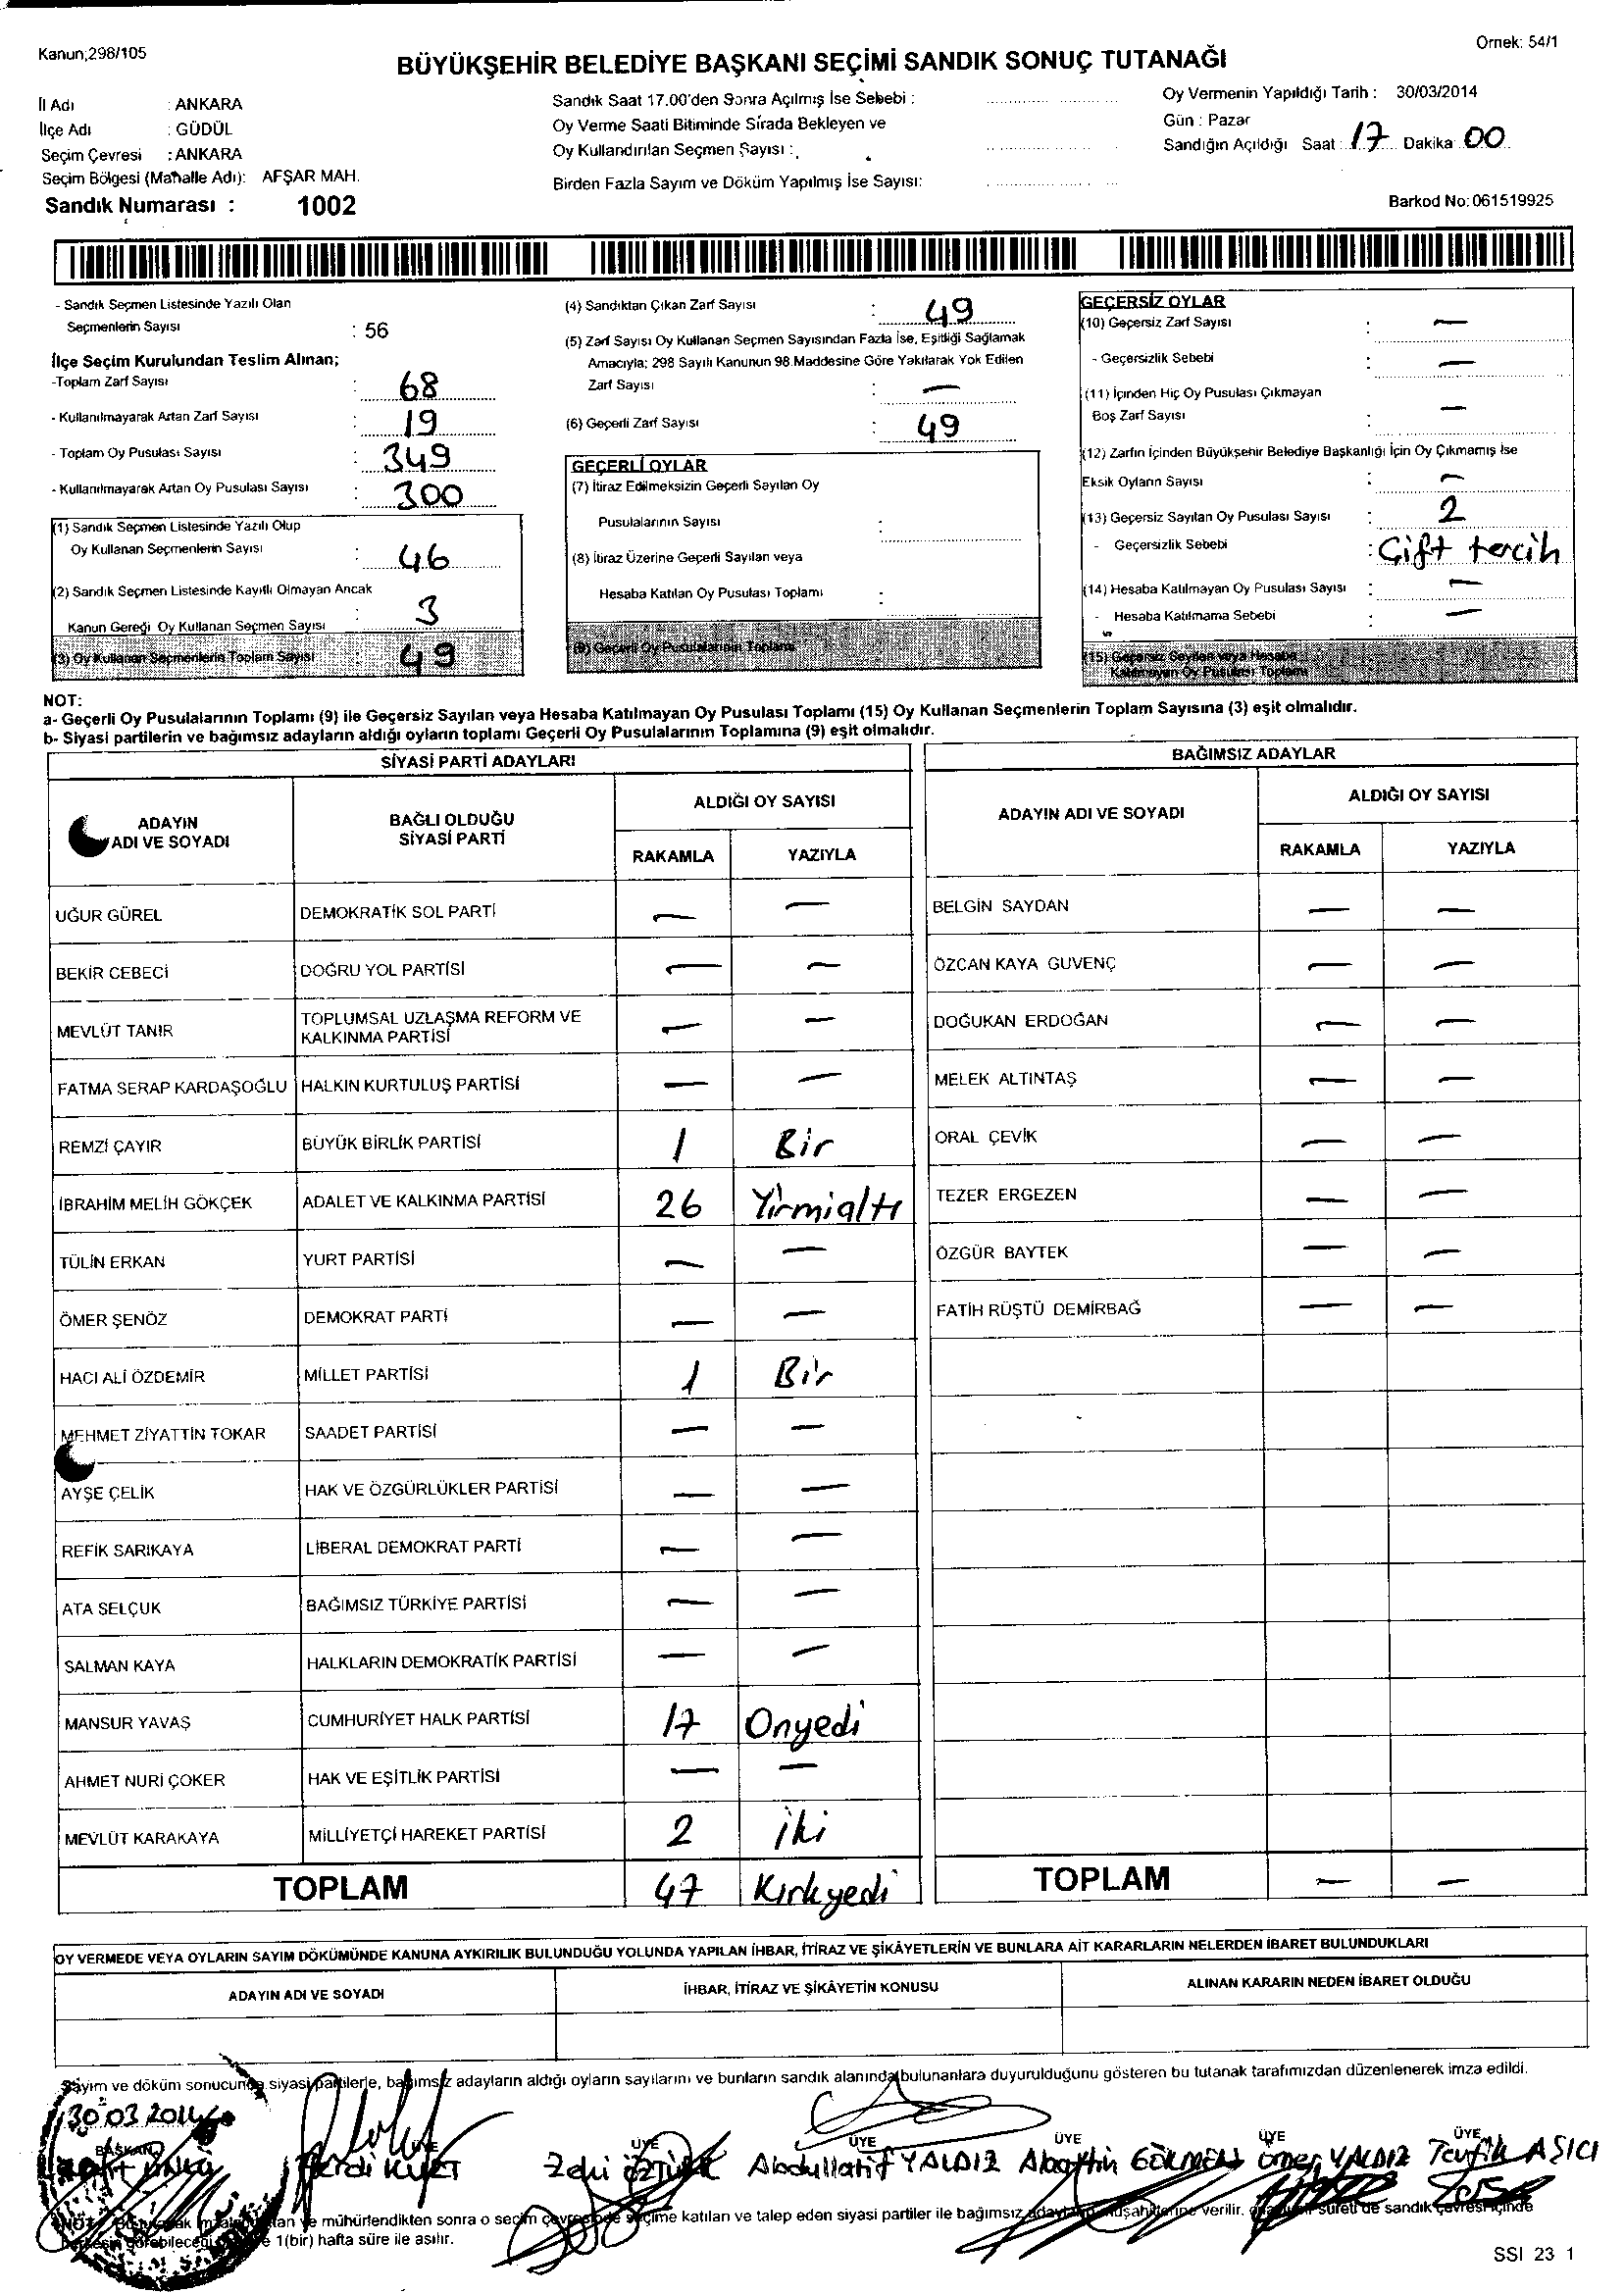 Kanun;298/105
Örnek: 54/1
BÜYÜKŞEHİR BELEDİYE BAŞKANI SEÇİMİ SANDIK SONUÇ TUTANAĞI
İl Adı : ANKARA
İlçe Adı : GÜDÜL
Seçim Çevresi : ANKARA
Seçim Bölgesi (Mahalle Adı): AFŞAR MAH.
Sandık Numarası : 1002
Sandık Saat 17.00'den Sonra Açılmış İse Sebebi :
Oy Verme Saati Bitiminde Sırada Bekleyen ve
Oy Kullandırılan Seçmen Sayısı :
Birden Fazla Sayım ve Döküm Yapılmış İse Sayısı:
Oy Vermenin Yapıldığı Tarih : 30/03/2014
Gün : Pazar
Sandığın Açıldığı Saat : 17 Dakika 00
Barkod No: 061519925
- Sandık Seçmen Listesinde Yazılı Olan
Seçmenlerin Sayısı : 56
İlçe Seçim Kurulundan Teslim Alınan;
-Toplam Zarf Sayısı : 68
- Kullanılmayarak Artan Zarf Sayısı : 19
- Toplam Oy Pusulası Sayısı : 349
- Kullanılmayarak Artan Oy Pusulası Sayısı : 300
(1) Sandık Seçmen Listesinde Yazılı Olup
Oy Kullanan Seçmenlerin Sayısı : 46
(2) Sandık Seçmen Listesinde Kayıtlı Olmayan Ancak
Kanun Gereği Oy Kullanan Seçmen Sayısı : 3
(3) Oy Kullanan Seçmenlerin Toplam Sayısı 49
(4) Sandıktan Çıkan Zarf Sayısı : 49
(5) Zarf Sayısı Oy Kullanan Seçmen Sayısından Fazla İse, Eşitliği Sağlamak
Amacıyla; 298 Sayılı Kanunun 98.Maddesine Göre Yakılarak Yok Edilen
Zarf Sayısı : —
(6) Geçerli Zarf Sayısı : 49
GEÇERLİ OYLAR
(7) İtiraz Edilmeksizin Geçerli Sayılan Oy
Pusulalarının Sayısı :
(8) İtiraz Üzerine Geçerli Sayılan veya
Hesaba Katılan Oy Pusulası Toplamı :
(9) Geçerli Oy Pusulalarının Toplamı
GEÇERSİZ OYLAR
(10) Geçersiz Zarf Sayısı : —
- Geçersizlik Sebebi : —
(11) İçinden Hiç Oy Pusulası Çıkmayan
Boş Zarf Sayısı : —
(12) Zarfın İçinden Büyükşehir Belediye Başkanlığı İçin Oy Çıkmamış İse
Eksik Oyların Sayısı : —
(13) Geçersiz Sayılan Oy Pusulası Sayısı : 2
- Geçersizlik Sebebi : Çift tercih
(14) Hesaba Katılmayan Oy Pusulası Sayısı : —
- Hesaba Katılmama Sebebi : —
(15) Geçersiz Sayılan veya Hesaba
Katılmayan Oy Pusulası Toplamı
NOT:
a- Geçerli Oy Pusulalarının Toplamı (9) ile Geçersiz Sayılan veya Hesaba Katılmayan Oy Pusulası Toplamı (15) Oy Kullanan Seçmenlerin Toplam Sayısına (3) eşit olmalıdır.
b- Siyasi partilerin ve bağımsız adayların aldığı oyların toplamı Geçerli Oy Pusulalarının Toplamına (9) eşit olmalıdır.
SİYASİ PARTİ ADAYLARI
ADAYIN ADI VE SOYADI
BAĞLI OLDUĞU SİYASİ PARTİ
ALDIĞI OY SAYISI
RAKAMLA YAZIYLA
UĞUR GÜREL DEMOKRATİK SOL PARTİ — —
BEKİR CEBECİ DOĞRU YOL PARTİSİ — —
MEVLÜT TANIR TOPLUMSAL UZLAŞMA REFORM VE KALKINMA PARTİSİ — —
FATMA SERAP KARDAŞOĞLU HALKIN KURTULUŞ PARTİSİ — —
REMZİ ÇAYIR BÜYÜK BİRLİK PARTİSİ 1 Bir
İBRAHİM MELİH GÖKÇEK ADALET VE KALKINMA PARTİSİ 26 Yirmialtı
TÜLİN ERKAN YURT PARTİSİ — —
ÖMER ŞENÖZ DEMOKRAT PARTİ — —
HACI ALİ ÖZDEMİR MİLLET PARTİSİ 1 Bir
MEHMET ZİYATTİN TOKAR SAADET PARTİSİ — —
AYŞE ÇELİK HAK VE ÖZGÜRLÜKLER PARTİSİ — —
REFİK SARIKAYA LİBERAL DEMOKRAT PARTİ — —
ATA SELÇUK BAĞIMSIZ TÜRKİYE PARTİSİ — —
SALMAN KAYA HALKLARIN DEMOKRATİK PARTİSİ — —
MANSUR YAVAŞ CUMHURİYET HALK PARTİSİ 17 Onyedi
AHMET NURİ ÇOKER HAK VE EŞİTLİK PARTİSİ — —
MEVLÜT KARAKAYA MİLLİYETÇİ HAREKET PARTİSİ 2 iki
TOPLAM 47 Kırkyedi
BAĞIMSIZ ADAYLAR
ADAYIN ADI VE SOYADI
ALDIĞI OY SAYISI
RAKAMLA YAZIYLA
BELGİN SAYDAN — —
ÖZCAN KAYA GÜVENÇ — —
DOĞUKAN ERDOĞAN — —
MELEK ALTINTAŞ — —
ORAL ÇEVİK — —
TEZER ERGEZEN — —
ÖZGÜR BAYTEK — —
FATİH RÜŞTÜ DEMİRBAĞ — —
TOPLAM — —
OY VERMEDE VEYA OYLARIN SAYIM DÖKÜMÜNDE KANUNA AYKIRILIK BULUNDUĞU YOLUNDA YAPILAN İHBAR, İTİRAZ VE ŞİKÂYETLERİN VE BUNLARA AİT KARARLARIN NELERDEN İBARET BULUNDUKLARI
ADAYIN ADI VE SOYADI İHBAR, İTİRAZ VE ŞİKÂYETİN KONUSU ALINAN KARARIN NEDEN İBARET OLDUĞU
Sayım ve döküm sonucunda siyasi partilerle, bağımsız adayların aldığı oyların sayılarını ve bunların sandık alanında bulunanlara duyurulduğunu gösteren bu tutanak tarafımızdan düzenlenerek imza edildi.
30.03.2014
BAŞKAN ÜYE ÜYE ÜYE ÜYE ÜYE ÜYE
Zeki ÖZTÜRK Abdullatif YALDIZ GÖKMEN Ömer YALDIZ Tevfik AŞICI
mühürlendikten sonra o seçim çevresinde seçime katılan ve talep eden siyasi partiler ile bağımsız verilir. sureti de sandık çevresi içinde
1(bir) hafta süre ile asılır.
SSI 23 1